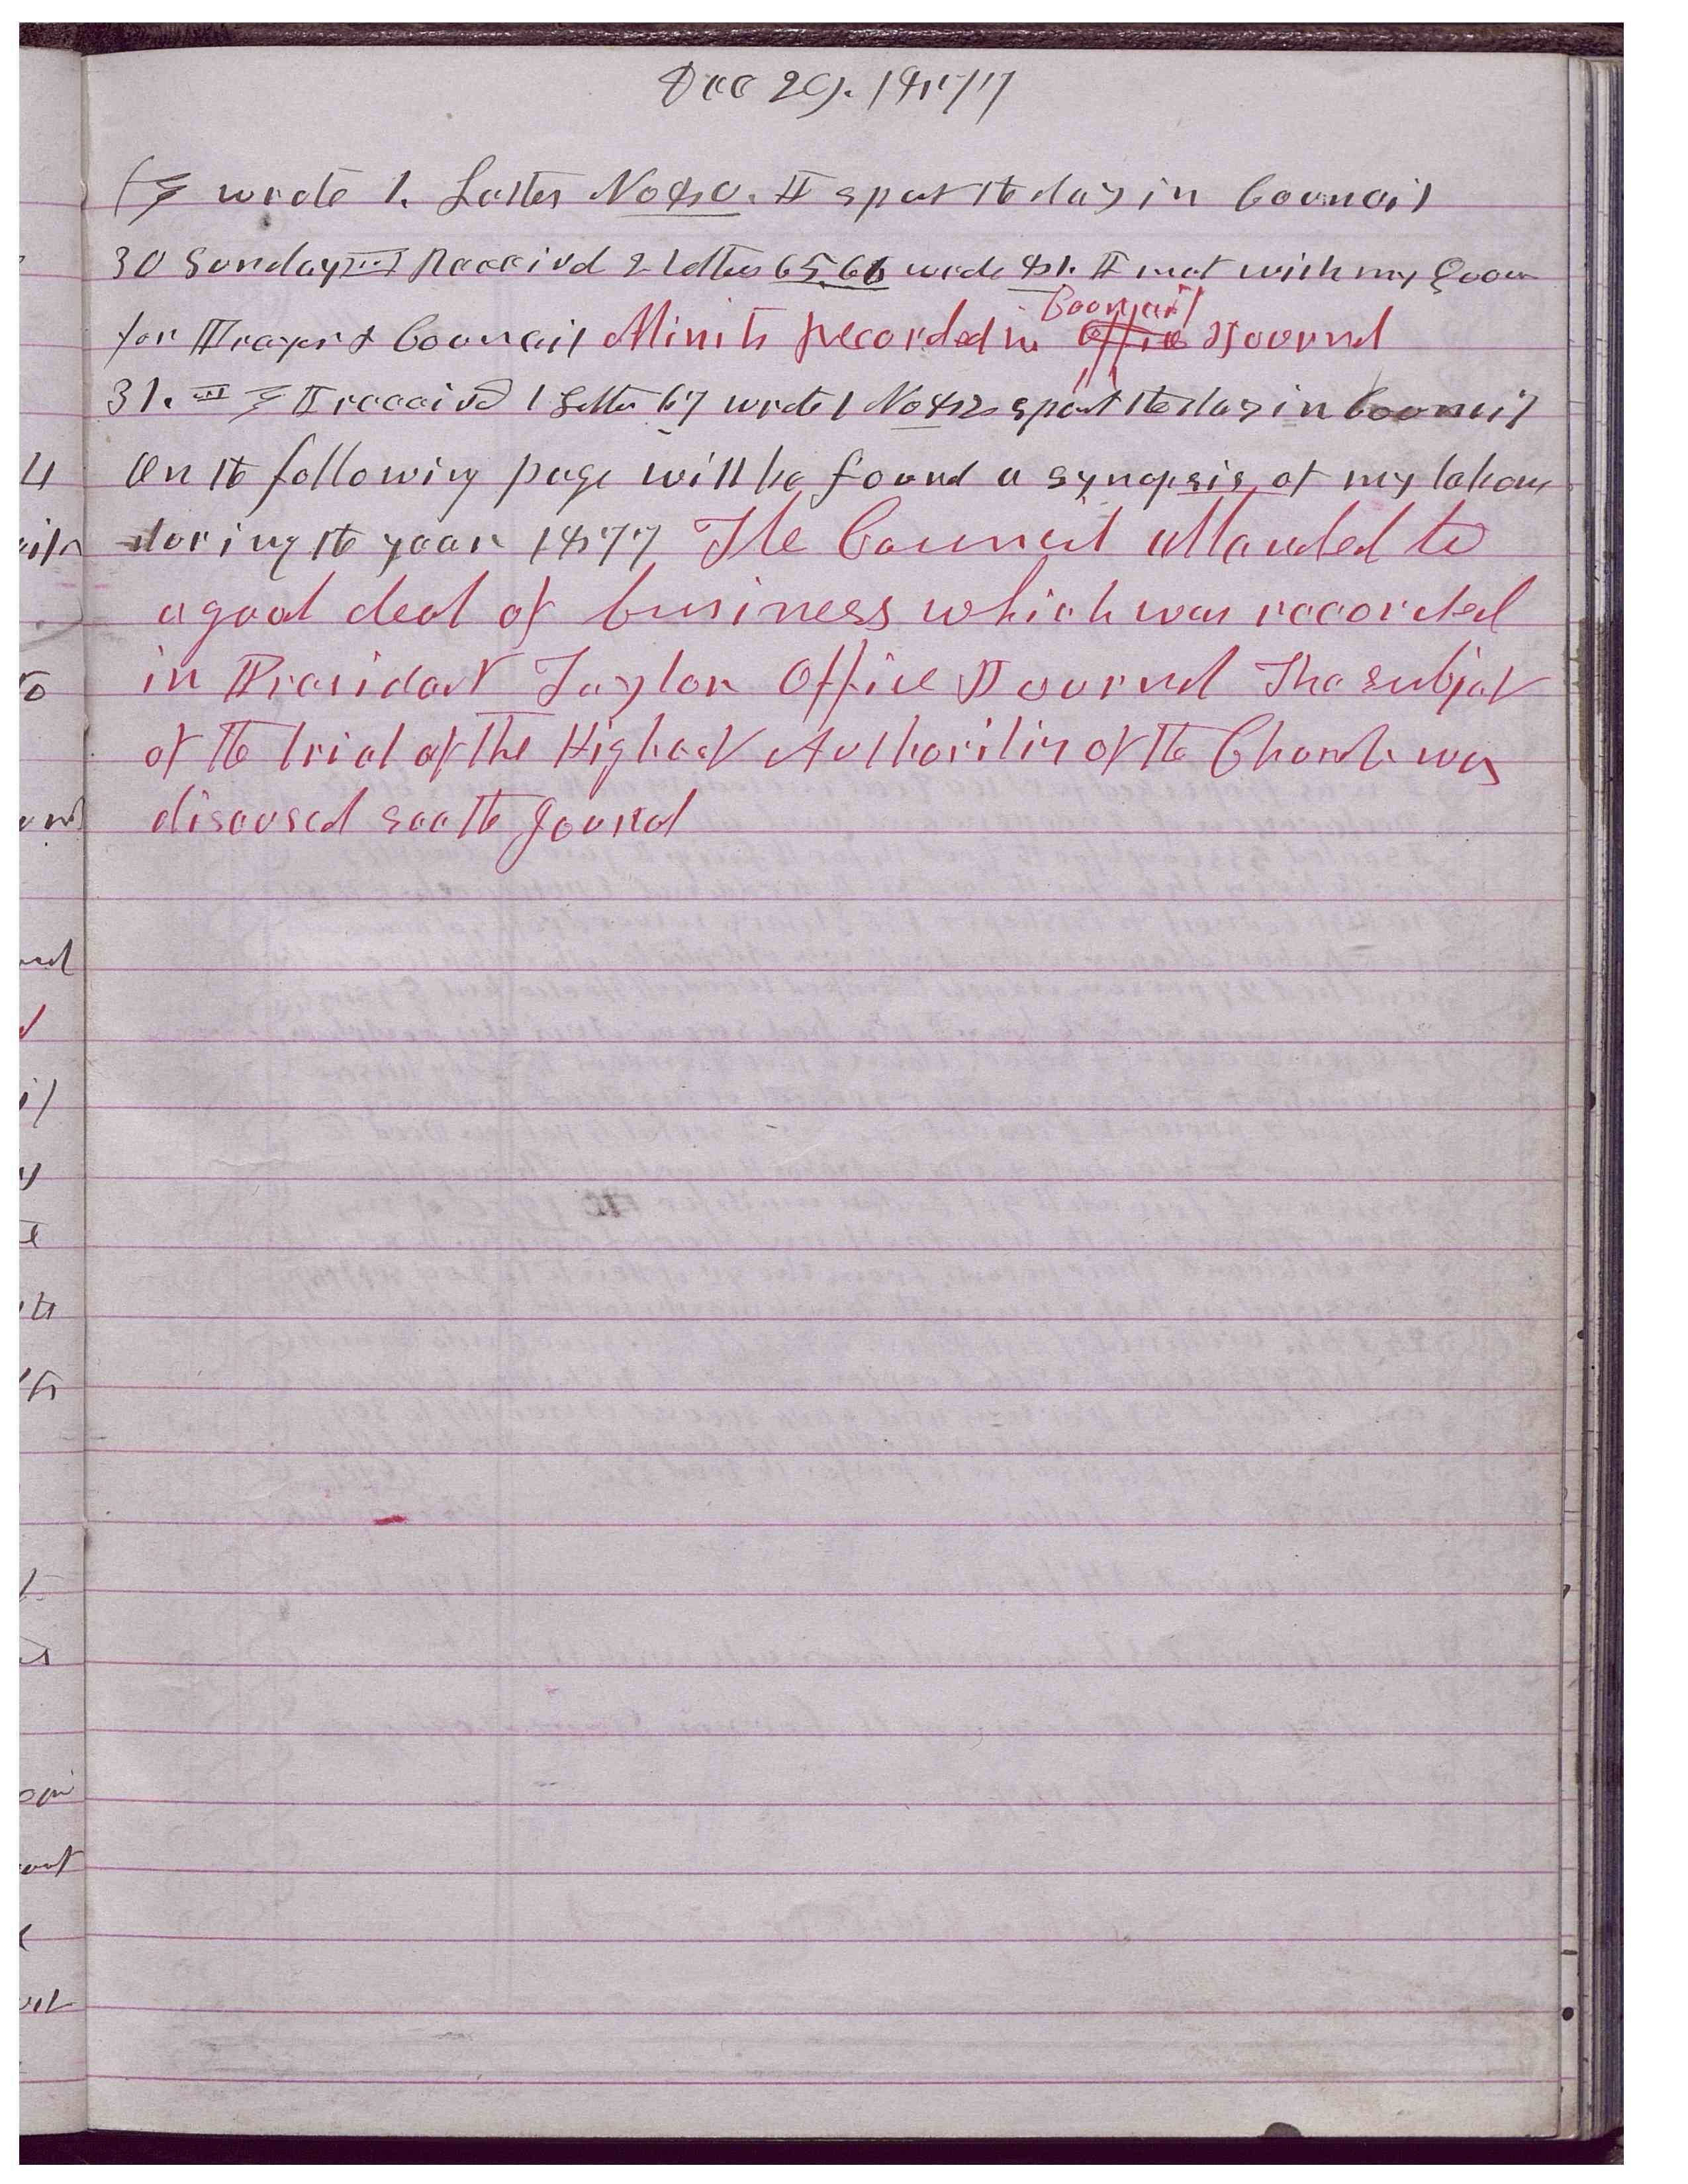 Dec 29. 1877
I wrote 1. Letter No 80. I spent the day in Council
30 Sunday I Received 2 letters 65, 66 wrote 81. I met with my Quoru
for Prayer & Council Minits recorded in Council Journal
31. I received 1 Letter 67 wrote 1 No 82 spent the day in Council
On the following page will be found a synopsis of my labors
during the year 1877 The Council attended to
a good deal of business which was recorded
in President Taylor Office Journal The subject
of the trial of the Highest Authorities of the Church was
discused see the Journal